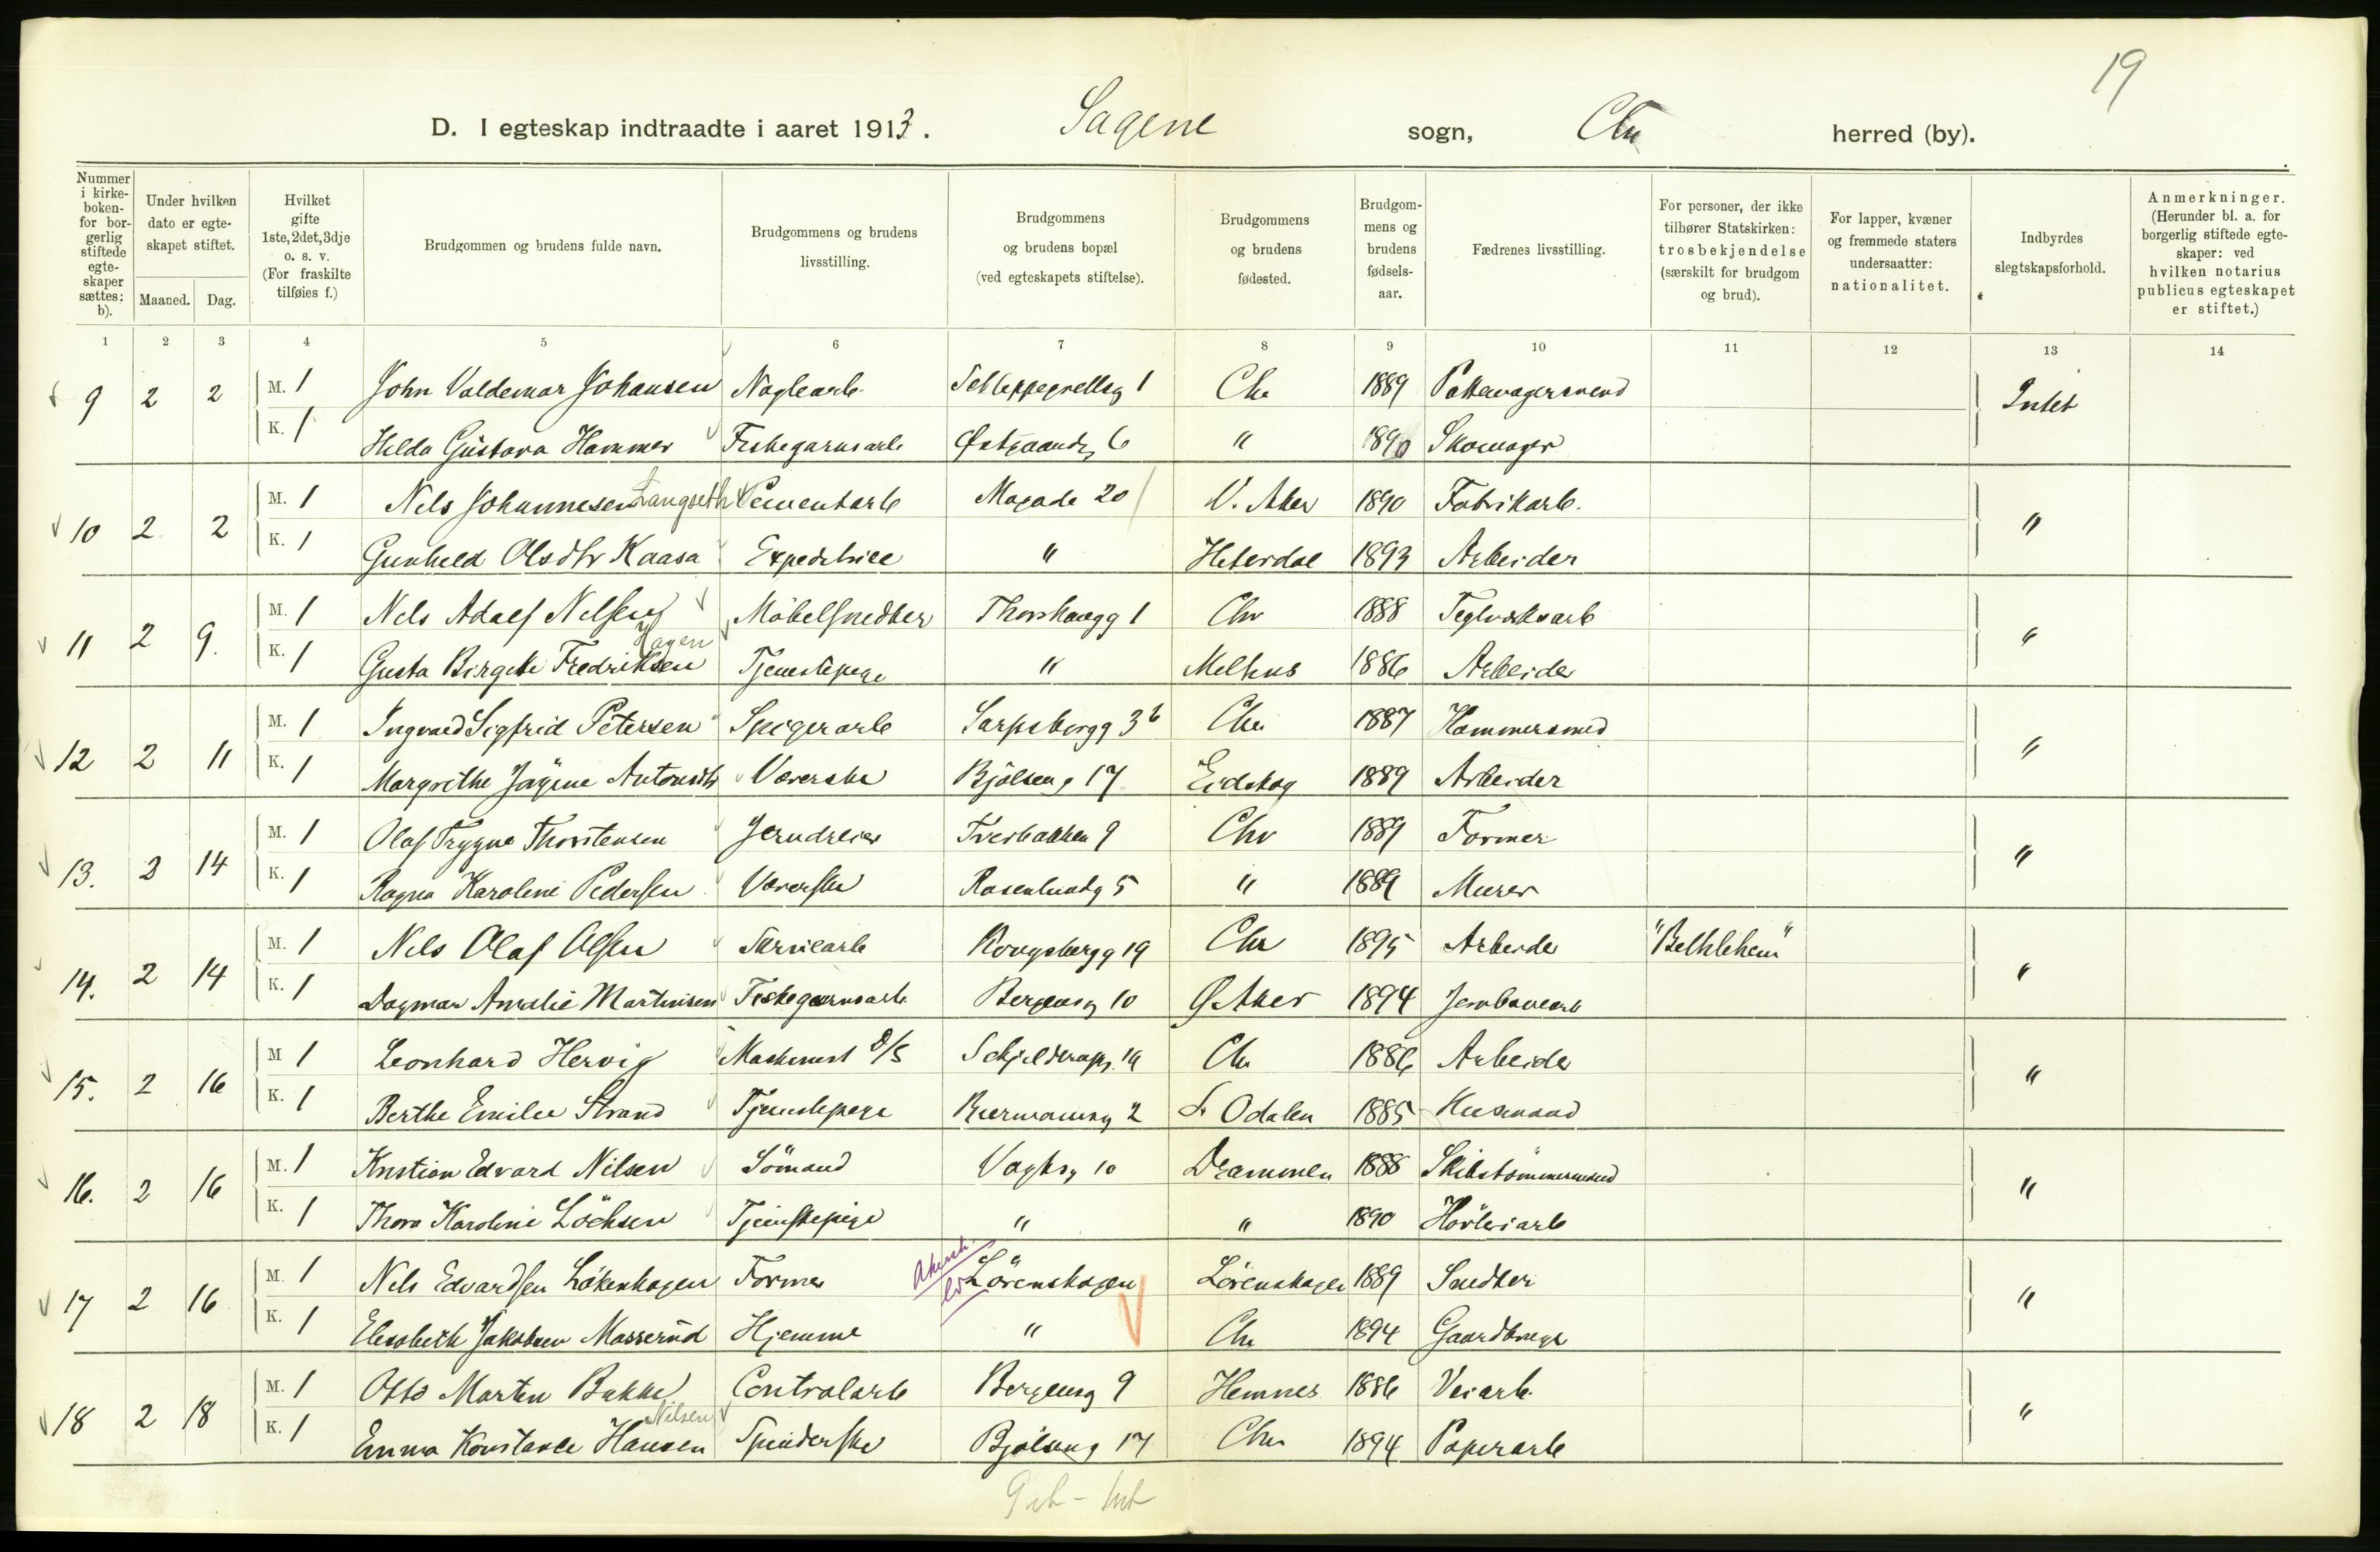 19
D. I egteskap indtraadte i aaret 1913. Sagene sogn, Chr herred (by).
Nummer i kirke-boken- for bor-gerlig stiftede egte-skaper sættes: b).
Under hvilken dato er egte-skapet stiftet.
Maaned. Dag.
Hvilket gifte 1ste, 2det, 3dje o. s. v. (For fraskilte tilføies f.)
Brudgommen og brudens fulde navn.
Brudgommens og brudens livsstilling.
Brudgommens og brudens bopæl (ved egteskapets stiftelse).
Brudgommens og brudens fødested.
Brudgom-mens og brudens fødsels-aar.
Fædrenes livsstilling.
For personer, der ikke tilhører Statskirken: trosbekjendelse (særskilt for brudgom og brud).
For lapper, kvæner og fremmede staters undersaatter: nationalitet.
Indbyrdes slegtskapsforhold.
Anmerkninger. (Herunder bl. a. for borgerlig stiftede egte-skaper: ved hvilken notarius publicus egteskapet er stiftet.)
1 2 3 4 5 6 7 8 9 10 11 12 13 14
9 2 2 M. 1 John Valdemar Johansen Naglearb. Schleppegrellsg 1 Chr 1889 Pottemagersvend Intet
K. 1 Helda Gustava Hammer Fiskegarnsarb Østgaardsg 6 " 1890 Skomager
10 2 2 M. 1 Nils Johannesen Langseth Cementarb Mogade 20 V. Aker 1890 Fabrikarb. "
K. 1 Gunhild Olsdtr Kaasa Expeditrice " Hiterdal 1893 Arbeider
11 2 9. M. 1 Nils Adolf Nilsen Möbelsnedker Thorshaugg 1 Chr 1888 Teglverksarb "
K. 1 Gusta Birgitte Fredriksen Hagen Tjenestepige " Melhus 1886 Arbeider
12 2 11 M. 1 Ingvald Sigfrid Petersen Spigerarb Sarpsborgg 3b Chr 1887 Hammersmed "
K. 1 Margrethe Jörgine Antonsdtr Væverske Bjölseng 17 Eidskog 1889 Arbeider
13. 2 14 M. 1 Olaf Trygve Thorstensen Jerndreier Tverbakken 9 Chr 1889 Former "
K. 1 Ragna Karoline Pedersen Væverske Rosenlundg 5 " 1889 Murer
14. 2 14 M. 1 Nils Olaf Olsen Kongsbergg 19 Chr 1895 Arbeider "Bethlehem" "
K. 1 Dagmar Amalie Martinisen Fiskegarnsarb Bergensg 10 Ø. Aker 1894 Jernbanearb
15. 2 16 M 1 Leonhard Hervig Maskinist D/S Schjelderupsg. 14 Chr 1886 Arbeider "
K. 1 Berthe Emilie Strand Tjenestepige Biermannsg 2 S. Odalen 1885 Husmand
16. 2 16 M. 1 Kristian Edvard Nilsen Sömand Vogtsg 10 Drammen 1888 Skibstömmermand "
K. 1 Thora Karoline Löchsen Tjenestepige " " 1890 Høvleriarb
17 2 16 M. 1 Nils Edvardsen Lökenhagen Former Akersh. Lörenskogen Lörenskogen 1889 Snedker "
K. 1 Elisabeth Jakobsen Masserud Hjemme " Chr 1894 Gaardbruger
18 2 18 M. 1 Otto Martin Bakke Centralarb Bergensg 9 Hemnes 1886 Veiarb. "
K. 1 Emma Konstance Hansen Nilsen Spinderske Bjölseng 17 Chr 1894 Papirarb